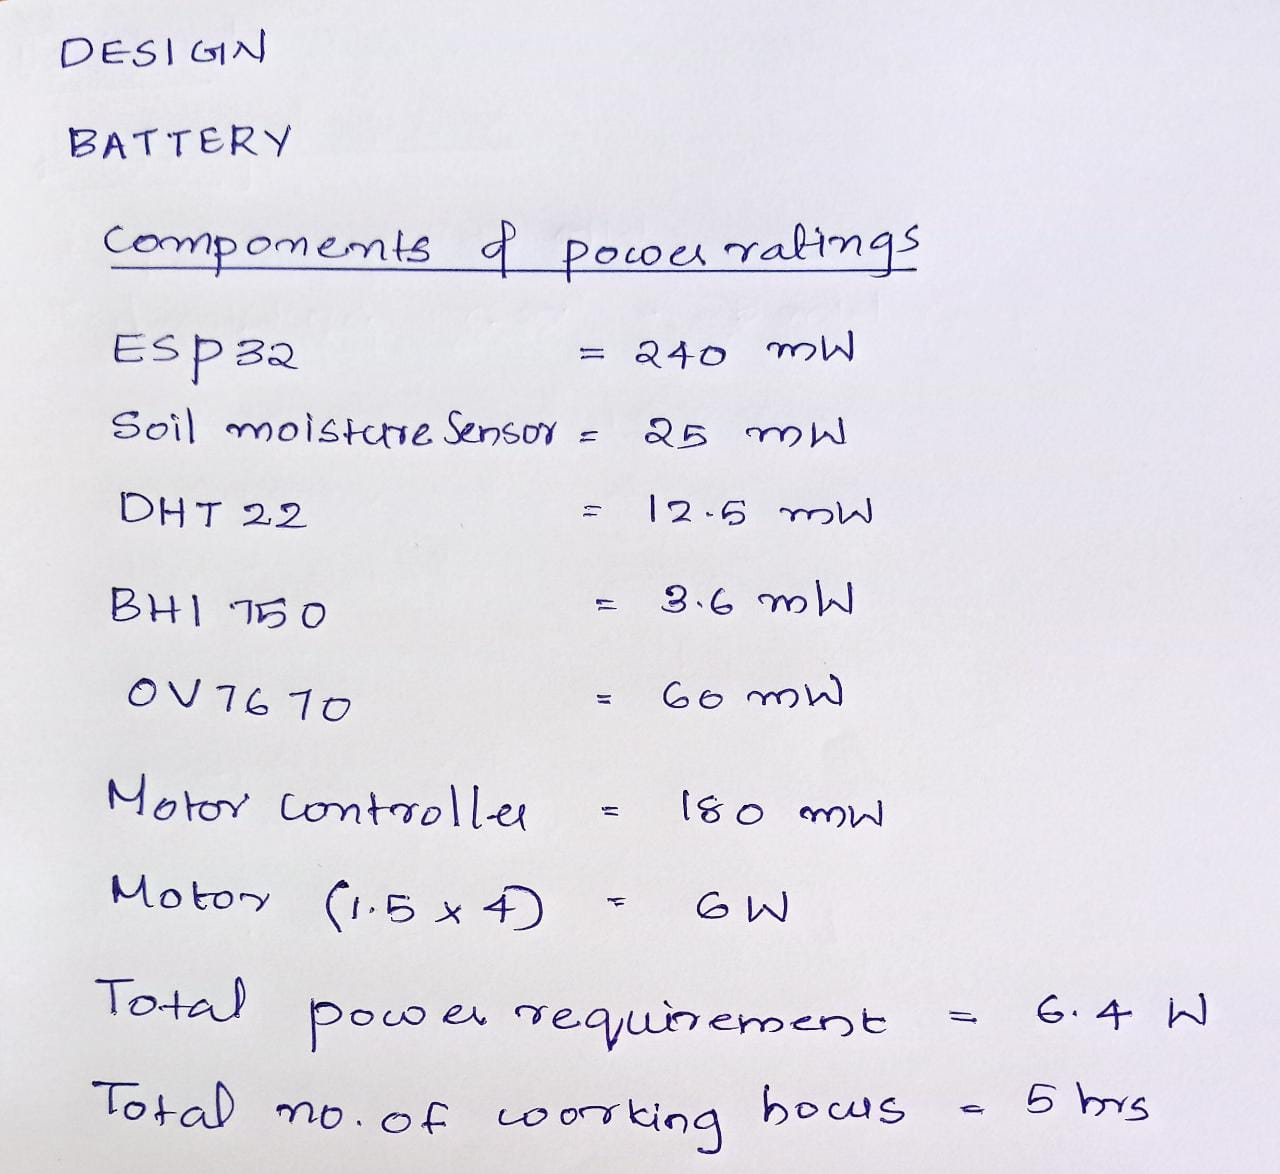 DESIGN
BATTERY
Components & power ratings
ESP32 = 240 mW
Soil moisture Sensor = 25 mW
DHT 22 = 12.5 mW
BHI 750 = 3.6 mW
OV7670 = 60 mW
Motor controller = 180 mW
Motor (1.5 x 4) = 6W
Total power requirement = 6.4 W
Total no. of working hours = 5 hrs